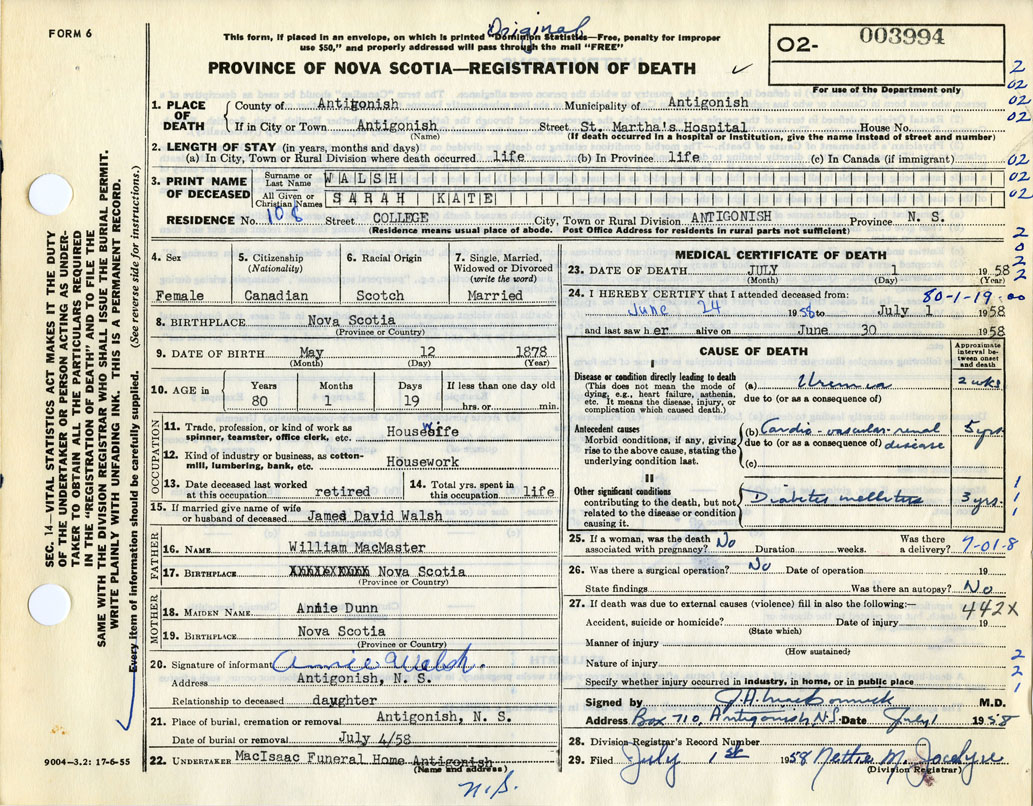 FORM 6
Original
This form, if placed in an envelope, on which is printed "Dominion Statistics—Free, penalty for improper
use $50," and properly addressed will pass through the mail "FREE"
PROVINCE OF NOVA SCOTIA—REGISTRATION OF DEATH ✓
O2- 003994
For use of the Department only
2
02
02
1. PLACE OF DEATH
County of Antigonish Municipality of Antigonish
If in City or Town Antigonish Street St. Martha's Hospital House No.
(Name) (If death occurred in a hospital or institution, give the name instead of street and number)
2. LENGTH OF STAY (in years, months and days)
(a) In City, Town or Rural Division where death occurred life (b) In Province life (c) In Canada (if immigrant) 02
3. PRINT NAME OF DECEASED
Surname or Last Name WALSH 02
All Given or Christian Names SARAH KATE 02
RESIDENCE No. 108 Street COLLEGE City, Town or Rural Division ANTIGONISH Province N. S.
(Residence means usual place of abode. Post Office Address for residents in rural parts not sufficient)
2
0
2
2
4. Sex
Female
5. Citizenship
(Nationality)
Canadian
6. Racial Origin
Scotch
7. Single, Married,
Widowed or Divorced
(write the word)
Married
8. BIRTHPLACE Nova Scotia
(Province or Country)
9. DATE OF BIRTH May 12 1878
(Month) (Day) (Year)
10. AGE in
Years Months Days If less than one day old
80 1 19 hrs. or min.
OCCUPATION
11. Trade, profession, or kind of work as
spinner, teamster, office clerk, etc. Housewife
12. Kind of industry or business, as cotton-
mill, lumbering, bank, etc. Housework
13. Date deceased last worked
at this occupation retired
14. Total yrs. spent in
this occupation life
15. If married give name of wife
or husband of deceased James David Walsh
FATHER
16. NAME William MacMaster
17. BIRTHPLACE Nova Scotia
(Province or Country)
MOTHER
18. MAIDEN NAME Annie Dunn
19. BIRTHPLACE Nova Scotia
(Province or Country)
20. Signature of informant Annie Walsh.
Address Antigonish, N. S.
Relationship to deceased daughter
21. Place of burial, cremation or removal Antigonish, N. S.
Date of burial or removal July 4/58
22. UNDERTAKER MacIsaac Funeral Home Antigonish
(Name and address)
N.S.
MEDICAL CERTIFICATE OF DEATH
23. DATE OF DEATH JULY 1 1958
(Month) (Day) (Year)
24. I HEREBY CERTIFY that I attended deceased from: 80-1-19.00
June 24 1958 to July 1 1958
and last saw her alive on June 30 1958
CAUSE OF DEATH
Approximate
interval be-
tween onset
and death
I
Disease or condition directly leading to death
(This does not mean the mode of
dying, e.g., heart failure, asthenia,
etc. It means the disease, injury, or
complication which caused death.)
(a) Uremia 2 wks
due to (or as a consequence of)
Antecedent causes
Morbid conditions, if any, giving
rise to the above cause, stating the
underlying condition last.
(b) Cardio-vascular-renal 5 yrs
due to (or as a consequence of) disease
(c)
II
Other significant conditions
contributing to the death, but not
related to the disease or condition
causing it.
Diabetes mellitus 3 yrs.
1
1
1
25. If a woman, was the death
associated with pregnancy? No Duration weeks. Was there
a delivery? 7-01-8
26. Was there a surgical operation? No Date of operation 19
State findings Was there an autopsy? No
27. If death was due to external causes (violence) fill in also the following:—
442X
Accident, suicide or homicide? Date of injury 19
(State which)
Manner of injury
(How sustained)
Nature of injury
Specify whether injury occurred in industry, in home, or in public place
2
2
1
Signed by J.A. MacCormick M.D.
Address Box 710, Antigonish N.S. Date July 1 1958
28. Division Registrar's Record Number
29. Filed July 1st 1958 Nettie M. Jocelyne
(Division Registrar)
SEC. 14—VITAL STATISTICS ACT MAKES IT THE DUTY
OF THE UNDERTAKER OR PERSON ACTING AS UNDER-
TAKER TO OBTAIN ALL THE PARTICULARS REQUIRED
IN THE "REGISTRATION OF DEATH" AND TO FILE THE
SAME WITH THE DIVISION REGISTRAR WHO SHALL ISSUE THE BURIAL PERMIT.
WRITE PLAINLY WITH UNFADING INK. THIS IS A PERMANENT RECORD.
Every item of information should be carefully supplied. (See reverse side for instructions.)
9004—3.2: 17-6-55